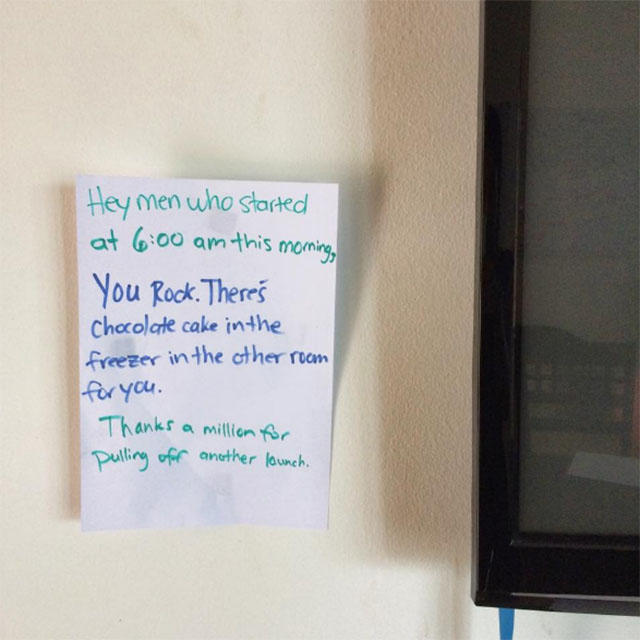 Hey men who started
at 6:00 am this morning,
You Rock. There's
chocolate cake in the
freezer in the other room
for you.
Thanks a million for
pulling off another launch.